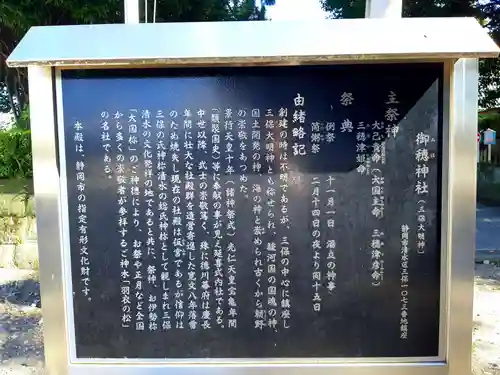 御穂神社（三保大明神）
静岡市清水区三保一〇七三番地鎮座
主祭神
大己貴命（大国主命）
三穂津彦命
三穂津姫命
祭典
例祭 十一月一日 湯立の神事
筒粥祭 二月十四日の夜より同十五日
由緒略記
創建の時は不明であるが、三保の中心に鎮座し
三保大明神とも称せられ、駿河国の国魂の神、
国土開発の神、海の神と崇められ古くから朝野
の崇敬をあつめた。
景行天皇十年（諸神祭式）光仁天皇宝亀年間
（類聚国史）等に奉献の事が見え延喜式内社である。
中世以降、武士の崇敬篤く、殊に徳川幕府は慶長
年間に壮大な社殿群を造営寄進した寛文八年落雷
のため焼失し現在の社殿は仮宮であるが信仰は
三保の氏神、清水の総氏神様として親しまれ三保
清水の文化発祥の地であると共に、祭神、お伊勢様
「大国様」のご神徳により、お祭や正月など全国
から多くの崇敬者が参拝するご神木「羽衣の松」
の名社である。
本殿は、静岡市の指定有形文化財です。